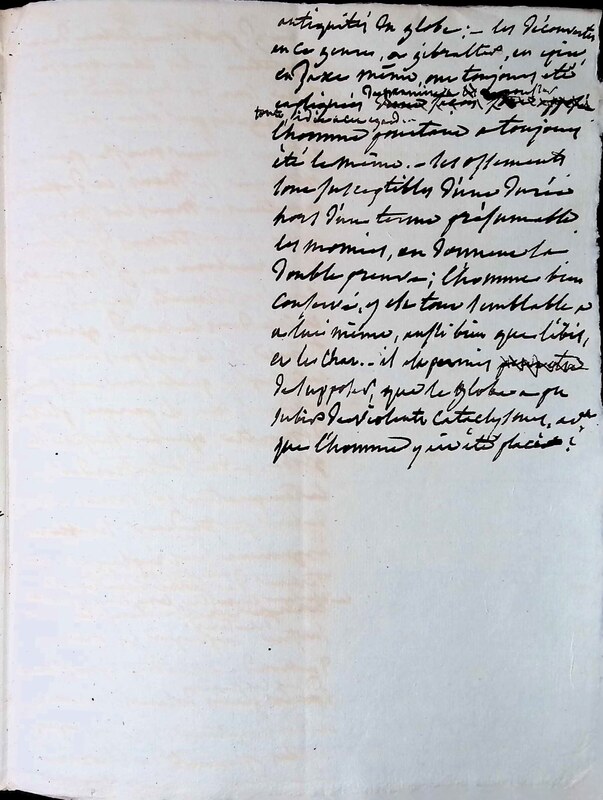 antiquités du globe; - les découvertes
en ce genre, a gibraltar, en
en même, ont toujours été
expliquées de manière a
toute idée a cet egard...
l'homme a toujours
été le même. - les ossements
sont susceptibles d'une durée
hors d'un terme présumable
les momies, en donnent la
double preuve; l'homme bien
conservé, y est tout semblable a
a lui même, aussi bien que l'ibis,
et les chats. - il est permis
de supposer, que le globe a pu
subir de violents cataclysmes, avt
que l'homme y ait été placé?